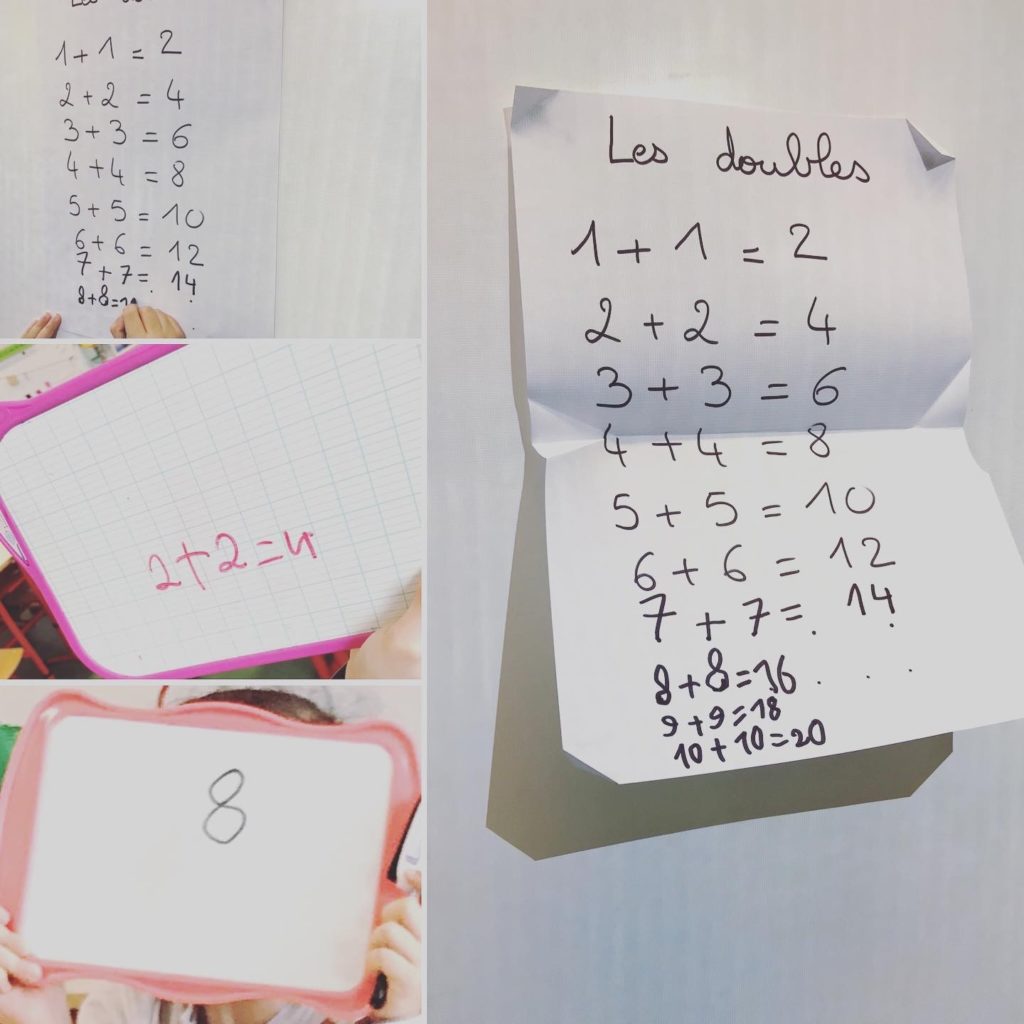 1 + 1 = 2
2 + 2 = 4
3 + 3 = 6
4 + 4 = 8
5 + 5 = 10
6 + 6 = 12
7 + 7 = 14
8 + 8 = 1
2 + 2 = 4
8
Les doubles
1 + 1 = 2
2 + 2 = 4
3 + 3 = 6
4 + 4 = 8
5 + 5 = 10
6 + 6 = 12
7 + 7 = 14
8 + 8 = 16
9 + 9 = 18
10 + 10 = 20